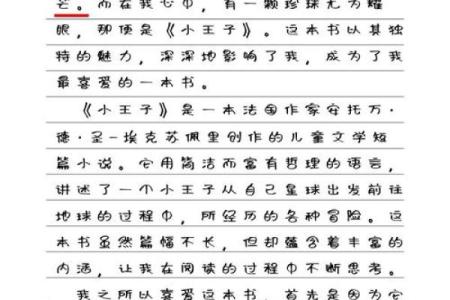 芒。而在我心中，有一颗珍珠尤为耀
眼，那便是《小王子》。这本书以其独
特的魅力，深深地影响了我，成为了我
最喜爱的一本书。
《小王子》是一本法国作家安托万·
德·圣-埃克苏佩里创作的儿童文学短
篇小说。它用简洁而富有哲理的语言，
讲述了一个小王子从自己星球出发前往
地球的过程中，所经历的各种冒险。这
本书虽然篇幅不长，但却蕴含着丰富的
内涵，让我在阅读的过程中不断思考。
我之所以喜爱这本书，首先是因为它